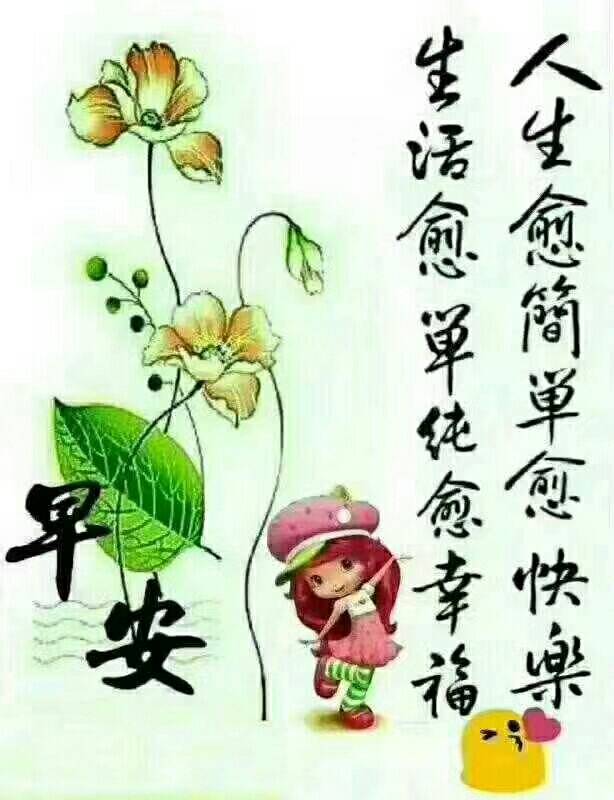 人生愈簡单愈快樂
生活愈単纯愈幸福
早安